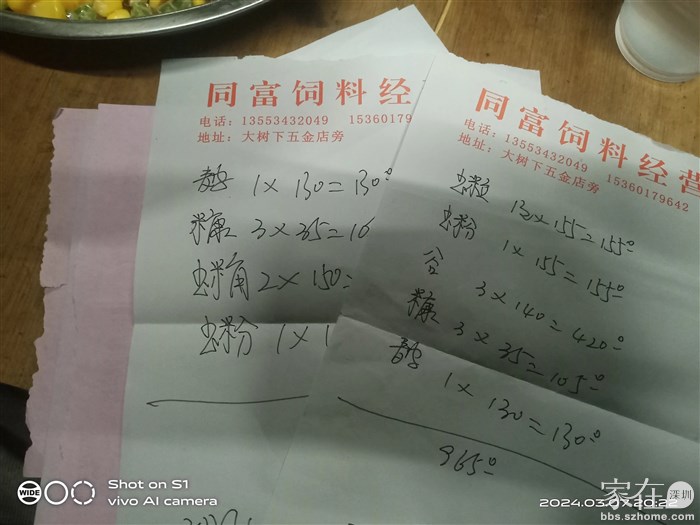 同富饲料经
电话：13553432049 15360179
地址：大树下五金店旁
1 × 130 = 130
糠 3 × 35 = 10
2 × 150 =
粉 1 × 1
同富饲料经营
电话：13553432049 15360179642
地址：大树下五金店旁
× 155 = 155
粉 1 × 155 = 155
谷 3 × 140 = 420
糠 3 × 35 = 105
1 × 130 = 130
965
WIDE
Shot on S1
vivo AI camera
2024.03.07 20:22
家在深圳
bbs.szhome.com